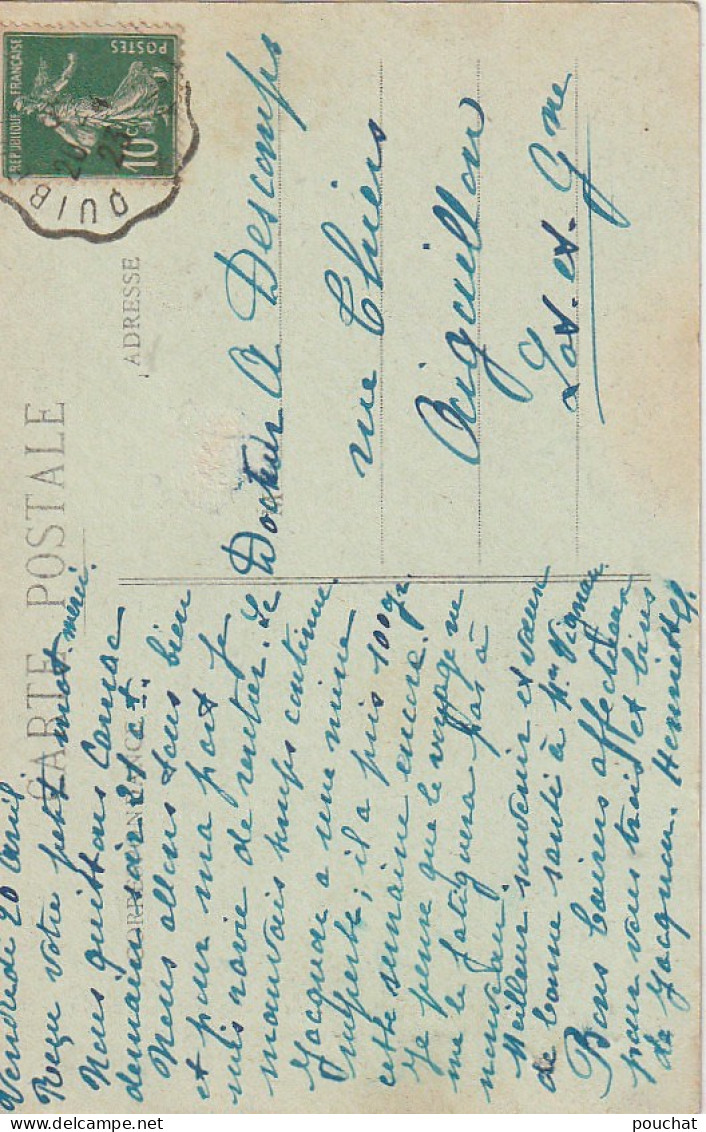 CARTE POSTALE
CORRESPONDANCE
ADRESSE
Vendredi 20 Avril
Reçu votre petit mot. merci.
Nous quittons Carnac
demain soir 21 ct.
Nous allons tous bien
et pour ma part je
suis ravie de rentrer. Le
mauvais temps continue.
Jacques a une mine
superbe; il a pris 100 gr.
cette semaine encore.
Je pense que le voyage ne
me le fatiguera pas à
nouveau.
Meilleur souvenir et vœux
de bonne santé à Mme Vignar
Bons baisers affectueux
pour vous trois et bises
de Jacques. Henriette
Docteur A Descamps
rue Thiers
Aiguillon
Lot. et. Gne
REPUBLIQUE FRANÇAISE
POSTES
10 c
QUIB
20
23
pouchat